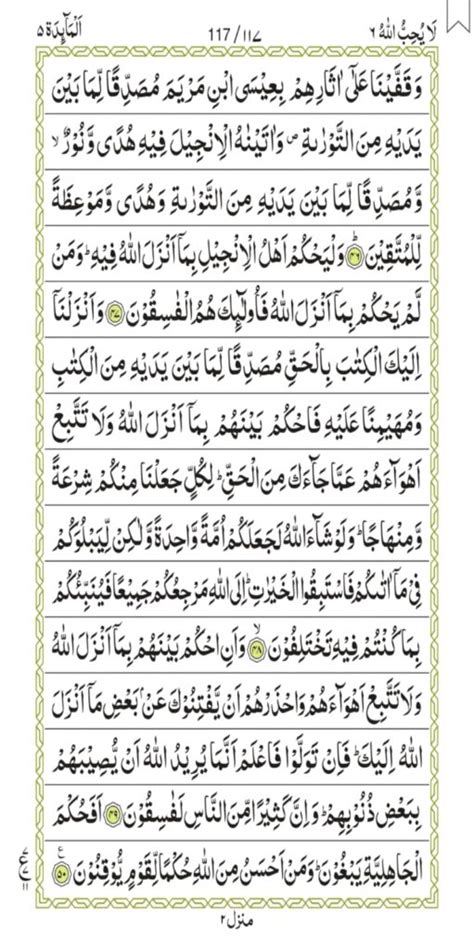 لَا يُحِبُّ اللّٰهُ ٦
117/١١٧
اَلْمَآىِٕدَة ٥
وَقَفَّيْنَا عَلٰۤى اٰثَارِهِمْ بِعِيْسَى ابْنِ مَرْيَمَ مُصَدِّقًا لِّمَا بَيْنَ
يَدَيْهِ مِنَ التَّوْرٰىةِ ۪ وَاٰتَيْنٰهُ الْاِنْجِيْلَ فِيْهِ هُدًى وَّنُوْرٌ ۙ
وَّمُصَدِّقًا لِّمَا بَيْنَ يَدَيْهِ مِنَ التَّوْرٰىةِ وَهُدًى وَّمَوْعِظَةً
لِّلْمُتَّقِيْنَ ؕ ﴿۴۶﴾ وَلْيَحْكُمْ اَهْلُ الْاِنْجِيْلِ بِمَاۤ اَنْزَلَ اللّٰهُ فِيْهِ ؕ وَمَنْ
لَّمْ يَحْكُمْ بِمَاۤ اَنْزَلَ اللّٰهُ فَاُولٰٓىِٕكَ هُمُ الْفٰسِقُوْنَ ﴿۴۷﴾ وَاَنْزَلْنَاۤ
اِلَيْكَ الْكِتٰبَ بِالْحَقِّ مُصَدِّقًا لِّمَا بَيْنَ يَدَيْهِ مِنَ الْكِتٰبِ
وَمُهَيْمِنًا عَلَيْهِ فَاحْكُمْ بَيْنَهُمْ بِمَاۤ اَنْزَلَ اللّٰهُ وَلَا تَتَّبِعْ
اَهْوَآءَهُمْ عَمَّا جَآءَكَ مِنَ الْحَقِّ ؕ لِكُلٍّ جَعَلْنَا مِنْكُمْ شِرْعَةً
وَّمِنْهَاجًا ؕ وَلَوْ شَآءَ اللّٰهُ لَجَعَلَكُمْ اُمَّةً وَّاحِدَةً وَّلٰكِنْ لِّيَبْلُوَكُمْ
فِيْ مَاۤ اٰتٰىكُمْ فَاسْتَبِقُوا الْخَيْرٰتِ ؕ اِلَى اللّٰهِ مَرْجِعُكُمْ جَمِيْعًا فَيُنَبِّئُكُمْ
بِمَا كُنْتُمْ فِيْهِ تَخْتَلِفُوْنَ ۙ ﴿۴۸﴾ وَاَنِ احْكُمْ بَيْنَهُمْ بِمَاۤ اَنْزَلَ اللّٰهُ
وَلَا تَتَّبِعْ اَهْوَآءَهُمْ وَاحْذَرْهُمْ اَنْ يَّفْتِنُوْكَ عَنْۢ بَعْضِ مَاۤ اَنْزَلَ
اللّٰهُ اِلَيْكَ ؕ فَاِنْ تَوَلَّوْا فَاعْلَمْ اَنَّمَا يُرِيْدُ اللّٰهُ اَنْ يُّصِيْبَهُمْ
بِبَعْضِ ذُنُوْبِهِمْ ؕ وَاِنَّ كَثِيْرًا مِّنَ النَّاسِ لَفٰسِقُوْنَ ﴿۴۹﴾ اَفَحُكْمَ
الْجَاهِلِيَّةِ يَبْغُوْنَ ؕ وَمَنْ اَحْسَنُ مِنَ اللّٰهِ حُكْمًا لِّقَوْمٍ يُّوْقِنُوْنَ ﴿۵۰﴾
ع
منزل ٢